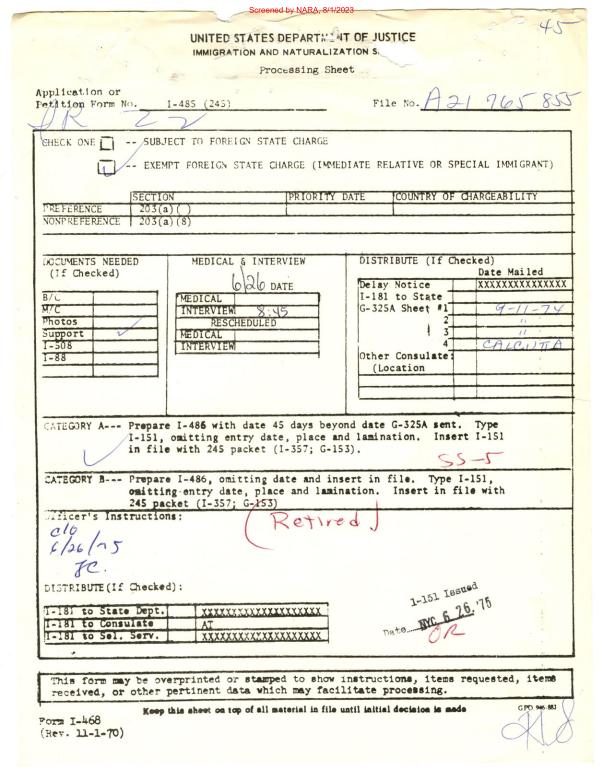 Screened by NARA, 8/1/2023
45
UNITED STATES DEPARTMENT OF JUSTICE
IMMIGRATION AND NATURALIZATION S.
Processing Sheet
Application or
Petition Form No. I-485 (245) File No. A21 765 855
CHECK ONE -- SUBJECT TO FOREIGN STATE CHARGE
-- EXEMPT FOREIGN STATE CHARGE (IMMEDIATE RELATIVE OR SPECIAL IMMIGRANT)
SECTION PRIORITY DATE COUNTRY OF CHARGEABILITY
PREFERENCE 203(a)( )
NONPREFERENCE 203(a)(8)
DOCUMENTS NEEDED
(If Checked)
B/C
M/C
Photos
Support
I-508
I-88
MEDICAL & INTERVIEW
6/26 DATE
MEDICAL
INTERVIEW 8:45
RESCHEDULED
MEDICAL
INTERVIEW
DISTRIBUTE (If Checked)
Date Mailed
Delay Notice XXXXXXXXXXXXXXX
I-181 to State
G-325A Sheet #1 9-11-74
2 "
3 "
4 CALCUTTA
Other Consulate:
(Location
CATEGORY A--- Prepare I-486 with date 45 days beyond date G-325A sent. Type
I-151, omitting entry date, place and lamination. Insert I-151
in file with 245 packet (I-357; G-153).
SS-5
CATEGORY B--- Prepare I-486, omitting date and insert in file. Type I-151,
omitting entry date, place and lamination. Insert in file with
245 packet (I-357; G-153)
Officer's Instructions:
(Retired)
6/26/75
DISTRIBUTE(If Checked):
I-181 to State Dept. XXXXXXXXXXXXXXXXXXXX
I-181 to Consulate AT
I-181 to Sel. Serv. XXXXXXXXXXXXXXXXXXXX
I-151 Issued
Date NYC 6 26. '75
OR
This form may be overprinted or stamped to show instructions, items requested, items
received, or other pertinent data which may facilitate processing.
Keep this sheet on top of all material in file until initial decision is made
GPO 946-883
Form I-468
(Rev. 11-1-70)